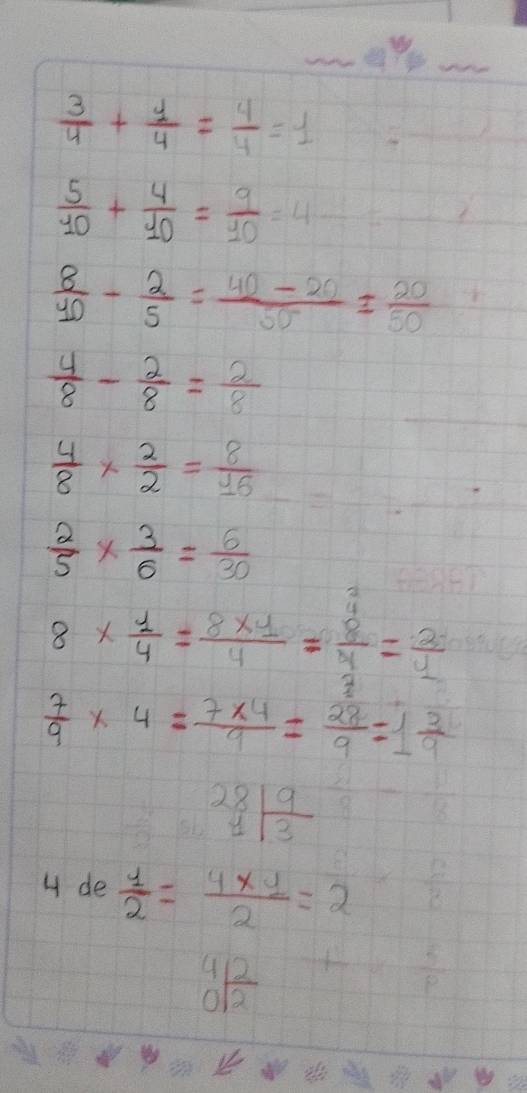 3/4 + 1/4 = 4/4 = 1
5/10 + 4/10 = 9/10 = 4
8/10 - 2/5 = 40 - 20/50 = 20/50
4/8 - 2/8 = 2/8
4/8 × 2/2 = 8/16
2/5 × 3/6 = 6/30
8 × 1/4 = 8×1/4 = 8/4 = 2/1
7/9 × 4 = 7×4/9 = 28/9 = 1 3/9
28 | 9
1 | 3
4 de 1/2 = 4×1/2 = 2
4 | 2
0 | 2